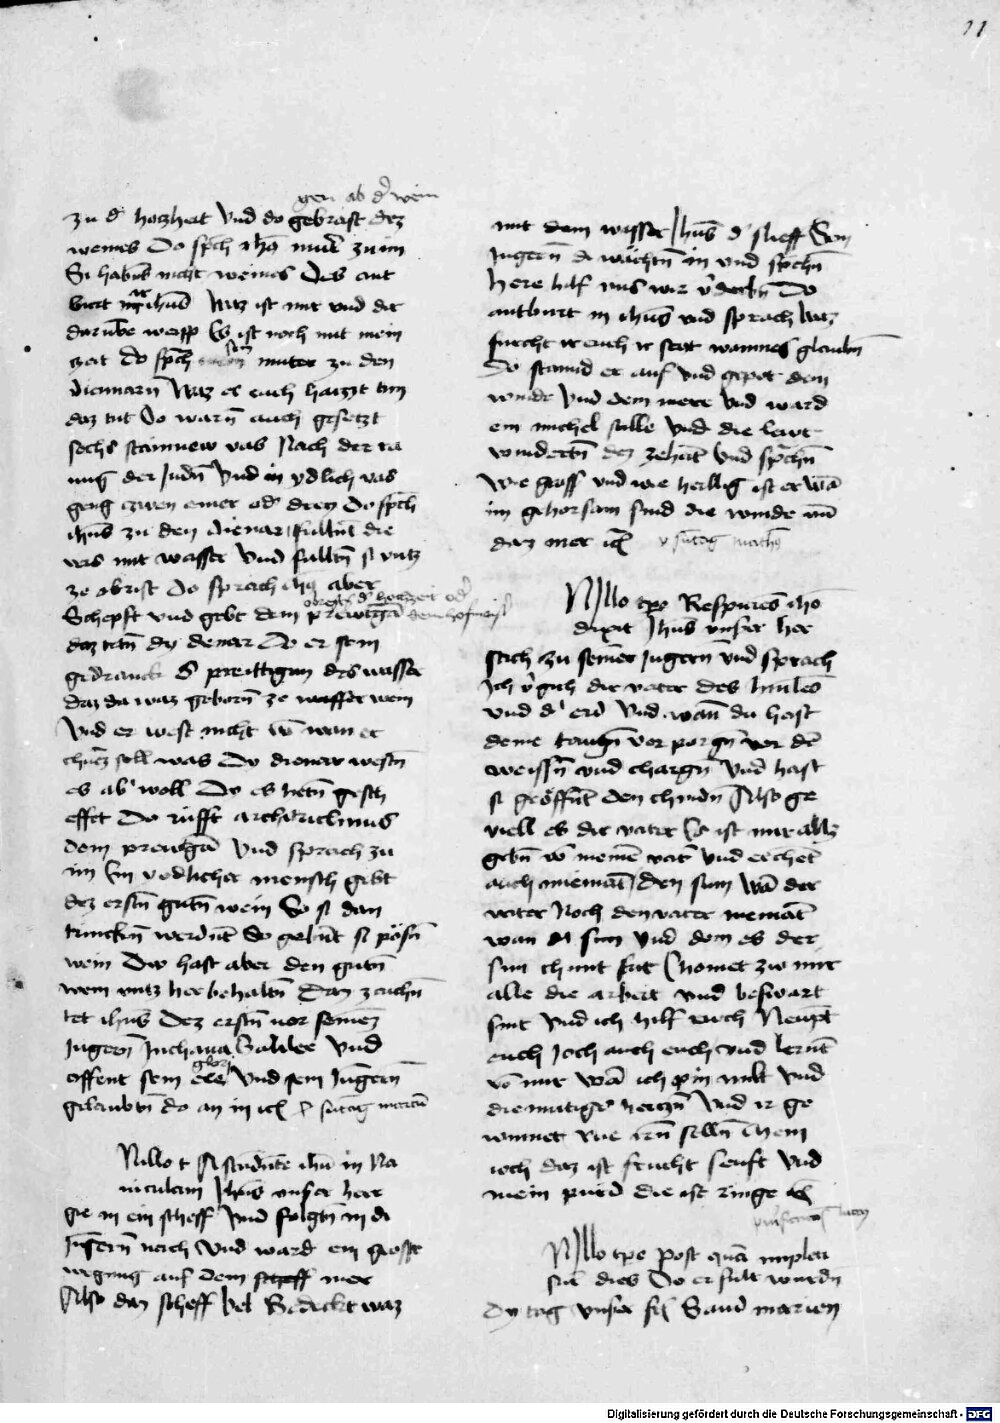 11
gen ab d' wein
zu d' hochzeit Vnd do gebrast dez
weines Do sp̄ch ih̄u mut' zu im
Si habnt nicht weines Des ant
burt ih̄us Waz ist mir vnd dir
dar vmbe weip Es ist noch nit mein
zeit do sp̄ch sein muter zu den
dienarn̄ Waz er euch haizzt tun
daz tut Do warn̄ auch gesetzt
sechs stainnew vas Nach der ra
nug der Judn̄ Vnd in ydlich vas
geng zwen emer od' drey Do sp̄ch
ih̄us zu den dienar fullnt die
vas mit wasser Vnd fulltn̄ si vntz
ze obrist Do sprach ih̄us aber
Schepft vnd gebt dem
daz tetn̄ dy dienar Do er sein
gedranck d' preittigan des wasser
daz da waz geborn̄ ze wasser wein
Vnd er west nicht vō wan er
chuem soll was Dy dienar westn̄
es ab' woll Dy es hetn̄ gesch
effet Do rufft architriclinus
dem preutgā Vnd sprach zu
im Ein yedlicher mensch gibt
dez erstn̄ gutn̄ wein So si dan
trunckn̄ werdnt So gebnt si pösn̄
wein Dw hast aber den gutn̄
wein vntz her behaltn̄ Daz zaichn̄
tet ih̄us Dez erstn̄ vor seinen
Jugern̄ Jnchana Galilee Vnd
offent sein ere Vnd sein Jugern̄
gelaubtn̄ do an in
Nillo t Ascendente ih̄u in Na
uiculam Jhūs vnser herr
gie in ein scheff Vnd folgtn̄ in di
Jugern̄ nach Vnd ward ein grosse
wegung auf dem scheff mer
Also daz scheff vel Bedeckt waz
mit dem wasser Jhūs d' slieff Sein
Jugern̄ di wachtn̄ in vnd sp̄chn̄
Here hilf vns wir v'derbn̄ Do
antburt in ih̄us vnd sprach Waz
furcht ir euch ir seit wannes glaubn̄
Do stannd er auf Vnd gepot dem
winde Vnd dem mere Vnd ward
ein michel stille Vnd die lawt
wndertn̄ dez zehāt Vnd sp̄chn̄
Wie gross vnd wie herllig ist er Wā
im gehorsam sind die winde vnd
daz mer
Nillo tpe Respiciens ih̄c
dixit Jhūs vnser her
sach zu seiner Jugern̄ vnd sprach
Ich v'gich dir vater des himels
vnd d' erd Vnd wan̄ du hast
deine taugn̄ vor porgn̄ vor dē
weissn̄ vnd chargn̄ Vnd hast
si geöffnt den chindn̄ Also ge
viell es dir vater Es ist mir allz
gebn̄ vō meinē vat' Vnd erchēt
auch niemāt den sun Wā der
vater Noch den vater niemāt
wan der sun Vnd dem es der
sun chunt tut Chomet zw mir
alle die arbeit vnd beswart
seit Vnd ich hilf euch Nempt
euch Joch auch euch vnd lernt
vō mir Wā ich pin milt Vnd
diemutiges hertzn̄ Vnd ir ge
winnet rue irn̄ sellen Mein
joch daz ist frucht senft Vnd
mein purd die ist ringe
Nillo tpe post quā impleti
sūt dies Do er fult wurdn̄
Dy tag vnser Sand marien
Digitalisierung gefördert durch die Deutsche Forschungsgemeinschaft - DFG